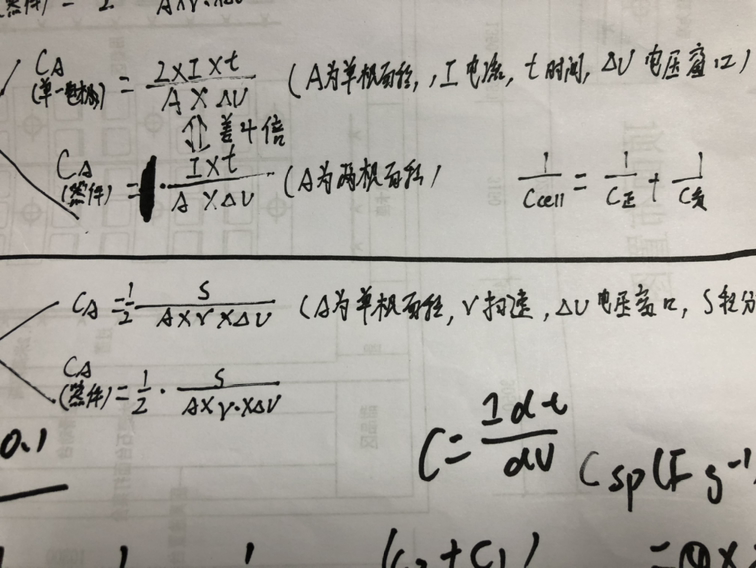 C_A (单一电极) = 2×I×t / A×ΔU (A为单极面积, I 电流, t 时间, ΔU 电压窗口)
⇕ 差4倍
C_A (器件) = · I×t / A×ΔU (A为两极面积) 1/Ccell = 1/C正 + 1/C负
C_A = 1/2 S / A×γ×ΔU (A为单极面积, γ 扫速, ΔU 电压窗口, S 积分
C_A (器件) = 1/2 · S / A×γ·×ΔU
0.1
C = Idt / dU Csp(F g⁻¹
(C₂+C₁)